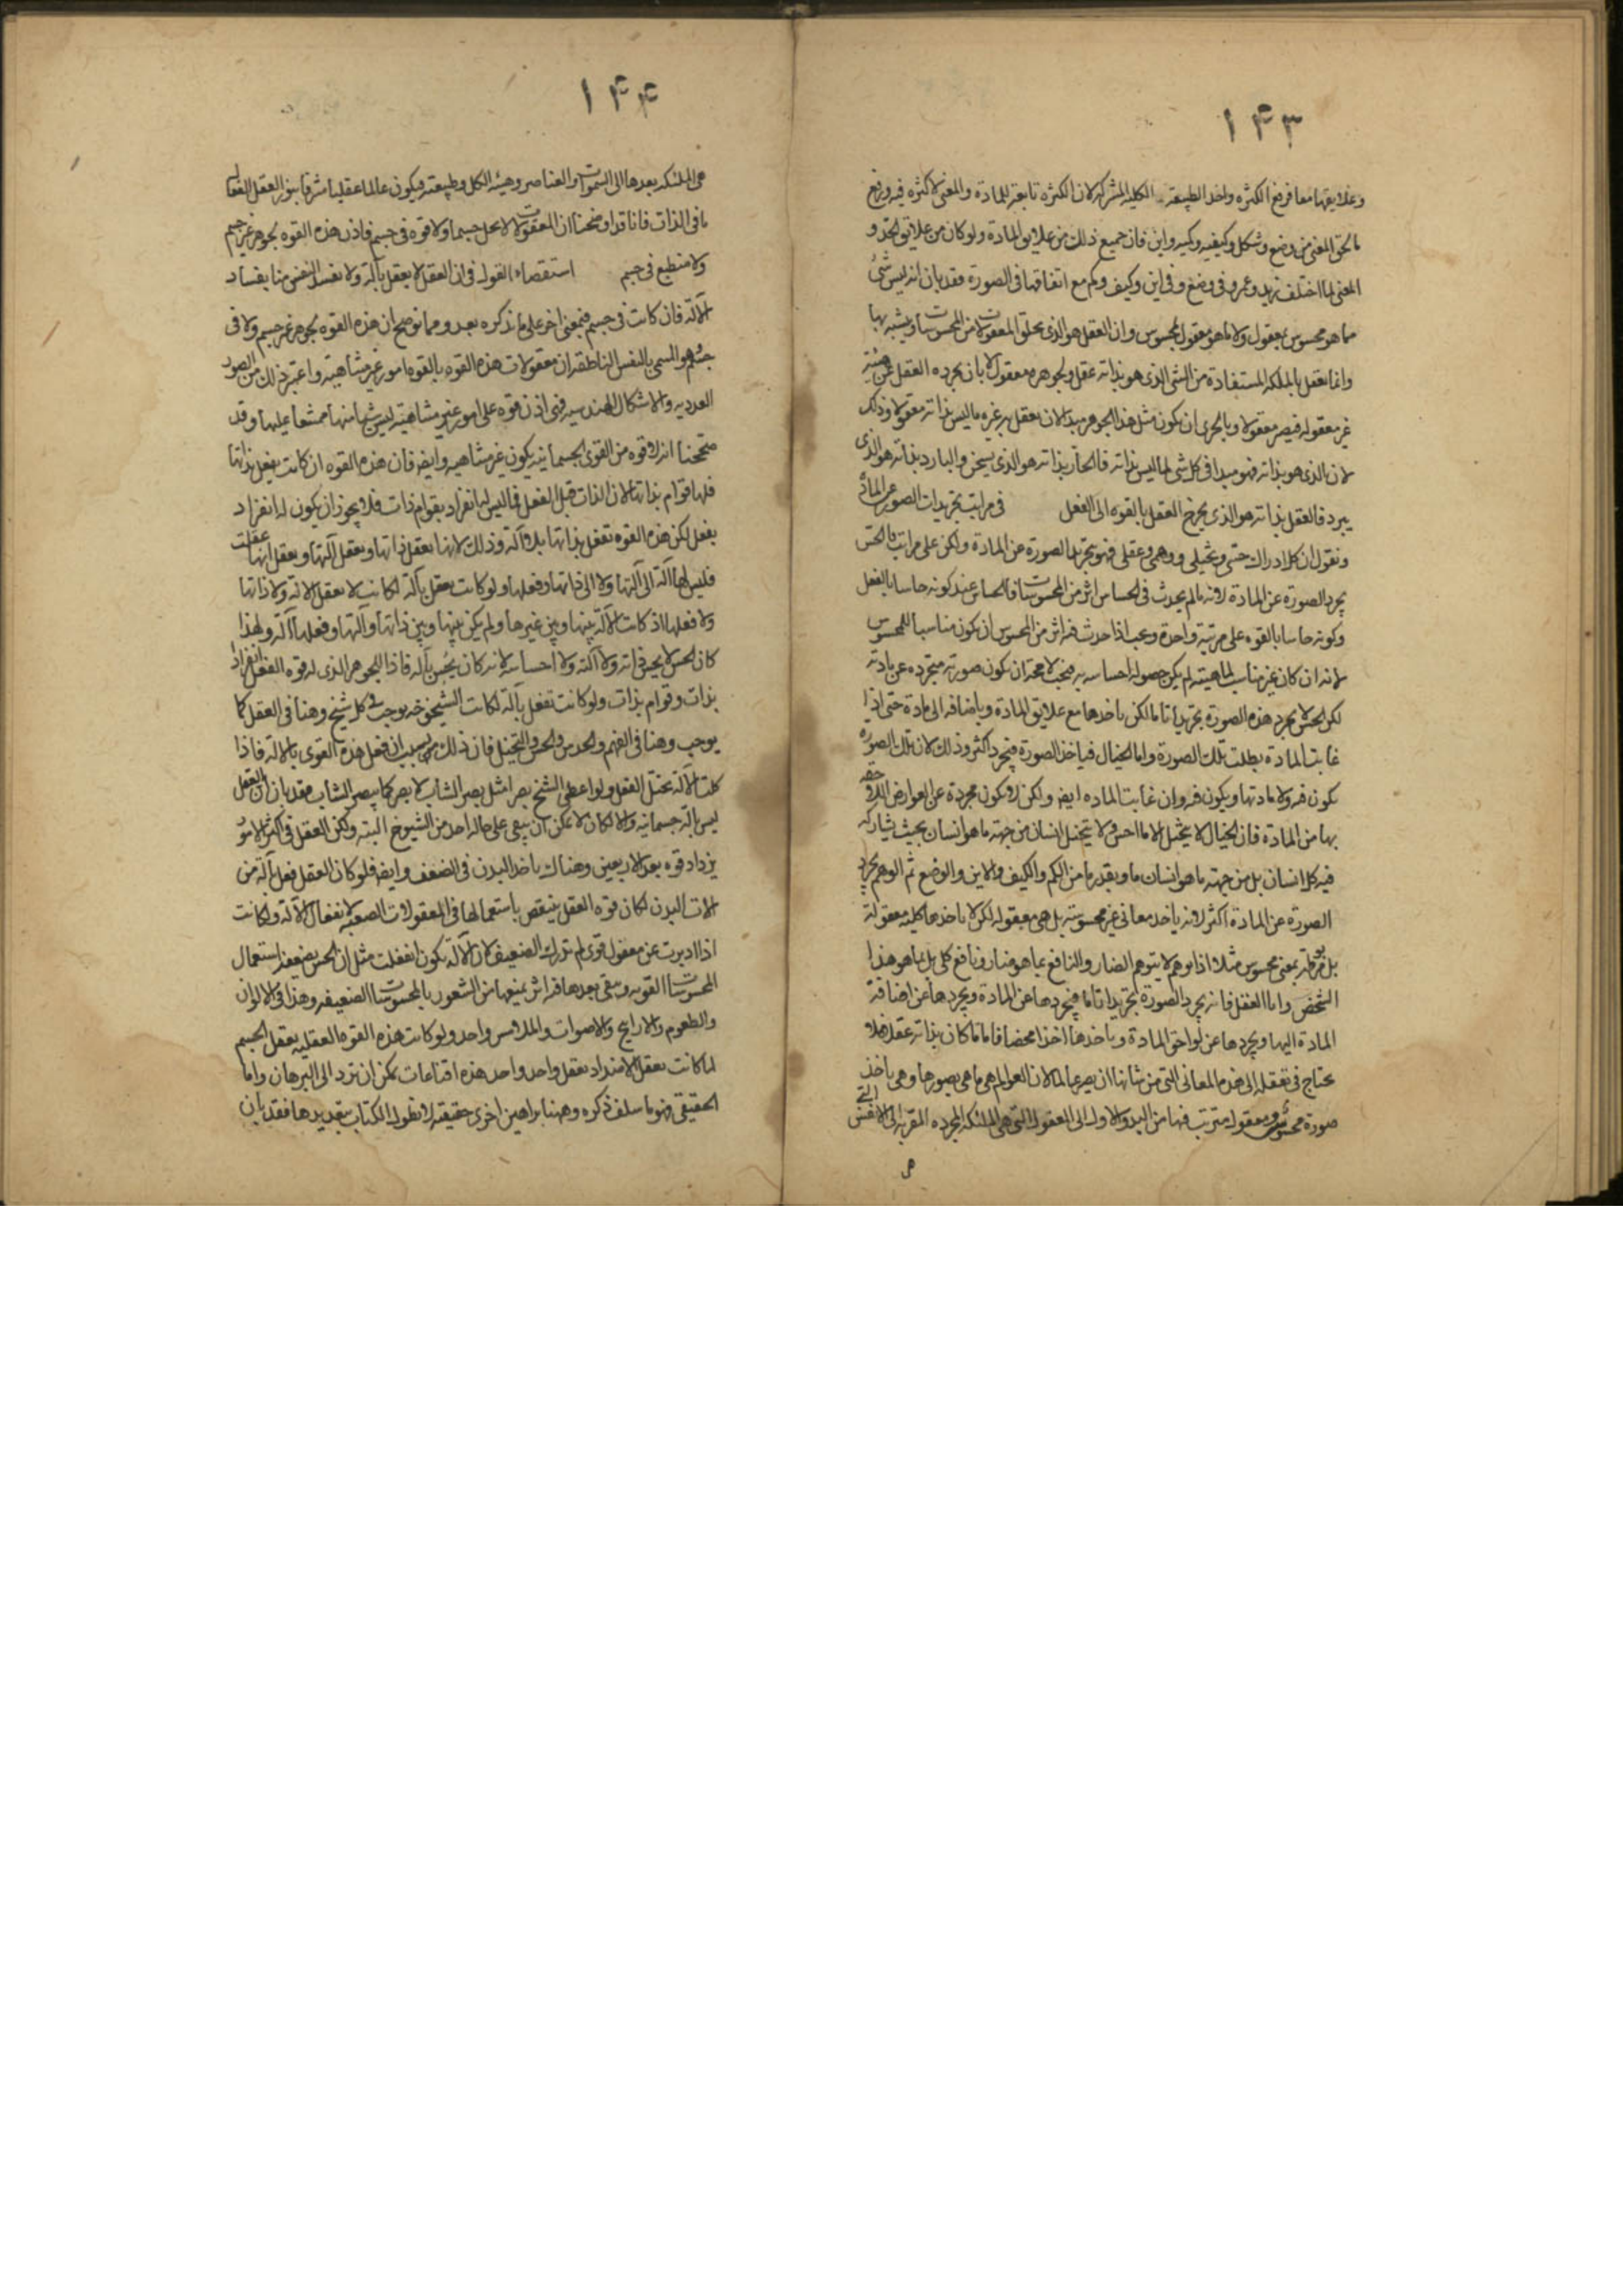 ١٤٣
وعلايقها معا فرفع الكثرة واخذ الطبيعة الكلية المشتركة لان الكثرة تابعة للمادة والمعنى لا كثرة فيه ورفع
ما لحق المعنى من وضع وشكل وكيفيه وكميه واين فان جميع ذلك من علايق المادة ولو كان من علايق الحد و
المعنى لما اختلف زيد وعمرو فى وضع وفى اين وكيف وكم مع اتفاقها فى الصورة فقد بان انه ليس شئ
مما هو محسوس بمعقول ولا ما هو معقول بمحسوس وان العقل هو الذى يخلق المعقولات من المحسوسات ويشبه بها
وانما يعقل بالملكه المستفادة من الشى الذى هو بذاته عقل وبجوهره معقول لا بان يجرده العقل عن هيئة
غير معقوله فيصير معقولا وبالحرى ان يكون مثل هذا الجوهر مبدا لان يعقل به غيره ما ليس بذاته معقولا وذلك
لان الذى هو بذاته فهو مبدا فى كل شى لما ليس بذاته فالحار بذاته هو الذى يسخن والبارد بذاته هو الذى
يبرد فالعقل بذاته هو الذى يخرج العقل بالقوه الى الفعل فى مراتب تجريدات الصور عن المادة
ونقول ان كل ادراك حسى وتخيلى ووهمى وعقلى فهو بتجريد الصورة عن المادة ولكن على مراتب فالحس
يجرد الصورة عن المادة لانه ما لم يحدث فى الحساس اثر من المحسوسات فالحساس عند كونه حاسا بالفعل
وكونه حاسا بالقوه على مرتبة واحدة ويجب اذا حدث فيه اثر من المحسوس ان يكون مناسبا للمحسوس
لانه ان كان غير مناسب لماهيته لم يكن حصوله احساسه به فيجب لا محة ان يكون صورته متجرده عن مادته
لكن الحس لا يجرد هذه الصورة تجريدا تاما لكن ياخذها مع علايق المادة وباضافه الى مادة حتى اذا
غابت المادة بطلت تلك الصورة واما الخيال فياخذ الصورة فيجرد اكثر وذلك لان تلك الصورة
تكون فيه ولا مادتها ويكون فيه وان غابت الماده ايض ولكن لا يكون مجردة عن العوارض اللاحقه
بها من المادة فان الخيال لا يتخيل الا ما احس ولا يتخيل انسان من جهته ما هو انسان بحيث يشاركه
فيه كل انسان بل من جهته ما هو انسان ما وبقدر ما من الكم والكيف والاين والوضع ثم الوهم يجرد
الصورة عن المادة اكثر لانه ياخذ معانى غير محسوسة بل هى معقوله لكن لا ياخذها كليه معقولة
بل مربوطة بمعنى محسوس مثلا اذا توهم لا يتوهم الضار والنافع بما هو ضار ونافع كلى بل بما هو هذا
الشخص واما العقل فانه يجرد الصورة تجريدا تاما فيجردها عن المادة ويجردها عن اضافة
المادة اليها ويجردها عن لواحق المادة وياخذها اخذا محضا فاما ما كان بذاته عقلا فلا
يحتاج فى تعقله الى هذه المعانى التى من شانها ان يصير عالما لان العوالم هى ما هى بصورها وهى ياخذ
صورة محسوس ومعقوله مترتب فيها من المبدو الاول الى العقول التى هى الملئكه المجرده المقربة الى الانفس التى
هى
١٤٤
هى الملئكه بعدها الى السموات والعناصر وهيئه الكل وطبيعته فيكون عالما عقليا مشرقا بنور العقل الفعال
باقى الذات فانا قد اوضحنا ان المعقولات لا يحل جسما ولا قوه فى جسم فاذن هذه القوه بجوهر غير جسم
ولا منطبع فى جسم استقصاء القول فى ان العقل لا يعقل بآلة ولا تفسد النفس منا بفساد
الآلة فان كانت فى جسم فبمعنى اخر على ما نذكره بعد ومما نوضح ان هذه القوه بجوهر غير جسم ولا فى
جسم وهو المسمى بالنفس الناطقه ان معقولات هذه القوه بالقوه امور غير متناهية واعتبر ذلك من الصور
العدديه والاشكال الهندسيه فهى اذن قوه على امور غير متناهية ليس شيا منها ممتنعا عليها وقد
صححنا انه لا قوه من القوى الجسمانيه يكون غير متناهيه وايض فان هذه القوه ان كانت يفعل بذاتها
فلها قوام بذاتها لان الذات قبل الفعل فما ليس له انفراد بقوام ذات فلا يجوز ان يكون له انفراد
بفعل لكن هذه القوه تفعل بذاتها بلا آلة وذلك لانها يعقل ذاتها ويعقل آلتها ويعقل انها عقلت
فليس لها آلة الى آلتها ولا الى ذاتها وفعلها ولو كانت يعقل بآلة لكانت لا يعقل الآلة ولا ذاتها
ولا فعلها اذ كانت الآلة بينها وبين غيرها ولم يكن بينها وبين ذاتها وآلتها وفعلها آلة ولهذا
كان الحس لا يحس ذاته ولا آلته ولا احساسه لانه كان يحس بآلة فاذا الجوهر الذى له قوه العقل انفراد
بذات وقوام بذات ولو كانت تفعل بآلة لكانت الشيخوخه يوجب فى كل شيخ وهنا فى العقل كما
يوجب وهنا فى الفهم والحدس والحس والتخيل فان ذلك بسبب ان فعل هذه القوى بالالة فاذا
كلت الآلة يختل الفعل ولو اعطى الشيخ بصرا مثل بصر الشاب لابصر كما يبصر الشاب فقد بان ان العقل
ليس بآلة جسمانية والا لكان لا يمكن ان يبقى على حاله احد من الشيوخ البته ولكن العقل فى اكثر الامور
يزداد قوه بعد الاربعين وهناك ياخذ البدن فى الضعف وايض فلو كان العقل فعل بآلة من
الات البدن لكان قوه العقل ينقص باستعمالها فى المعقولات الصعبة لانفعال الآلة ولكانت
اذا ادبرت عن معقول قوى لم تدرك الضعيف لان الآلة تكون انفعلت مثل ان الحس يضعفه استعمال
المحسوسات القويه ويبقى بعدها فيه اثر يمنعها من الشعور بالمحسوسات الضعيفه وهذا فى الالوان
والطعوم والارايح والاصوات والملامس واحد ولو كانت هذه القوه العقليه يعقل الجسم
لما كانت يعقل الامتداد بعقل واحد واحد هذه اقناعات يمكن ان ترد الى البرهان واما
الحقيقى فهو ما سلف ذكره وههنا براهين اخرى حقيقيه لا نطول الكتاب بتعديدها فقد بان